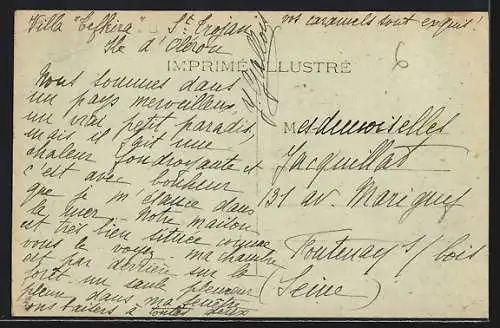 Villa "Cefkira" St Trojan
Ile d'Oléron
vos caramels sont exquis!
IMPRIMÉ ILLUSTRÉ
6
Nous sommes dans
un pays merveilleux,
un vrai petit paradis,
mais il fait une
chaleur foudroyante et
c'est avec bonheur
que je m'élance dans
la mer. Notre maison
est très bien située comme
vous le voyez. ma chambre
est par derrière sur la
forêt. un saule pleureur
pleure dans ma fenêtre
bons baisers à toutes deux
Mesdemoiselles
Jacquillat
131 av. Marigny
Fontenay s/ bois
(Seine)